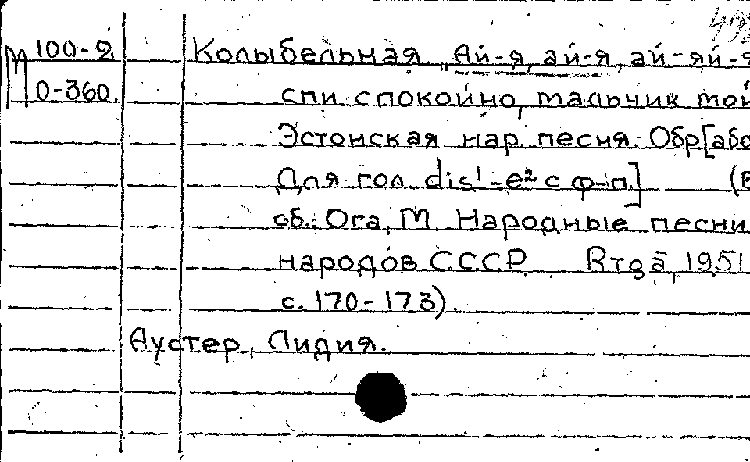 М 100-2 Колыбельная „Ай-я, ай-я, ай-яй-я
0-360. спи спокойно, мальчик мой
Эстонская нар. песня. Обр[або
Для гол. dis¹-e² с ф-п.] (В
сб.: Ога, М. Народные песни
народов СССР Rīgā, 1951
с. 170-173)
Аустер, Лидия.